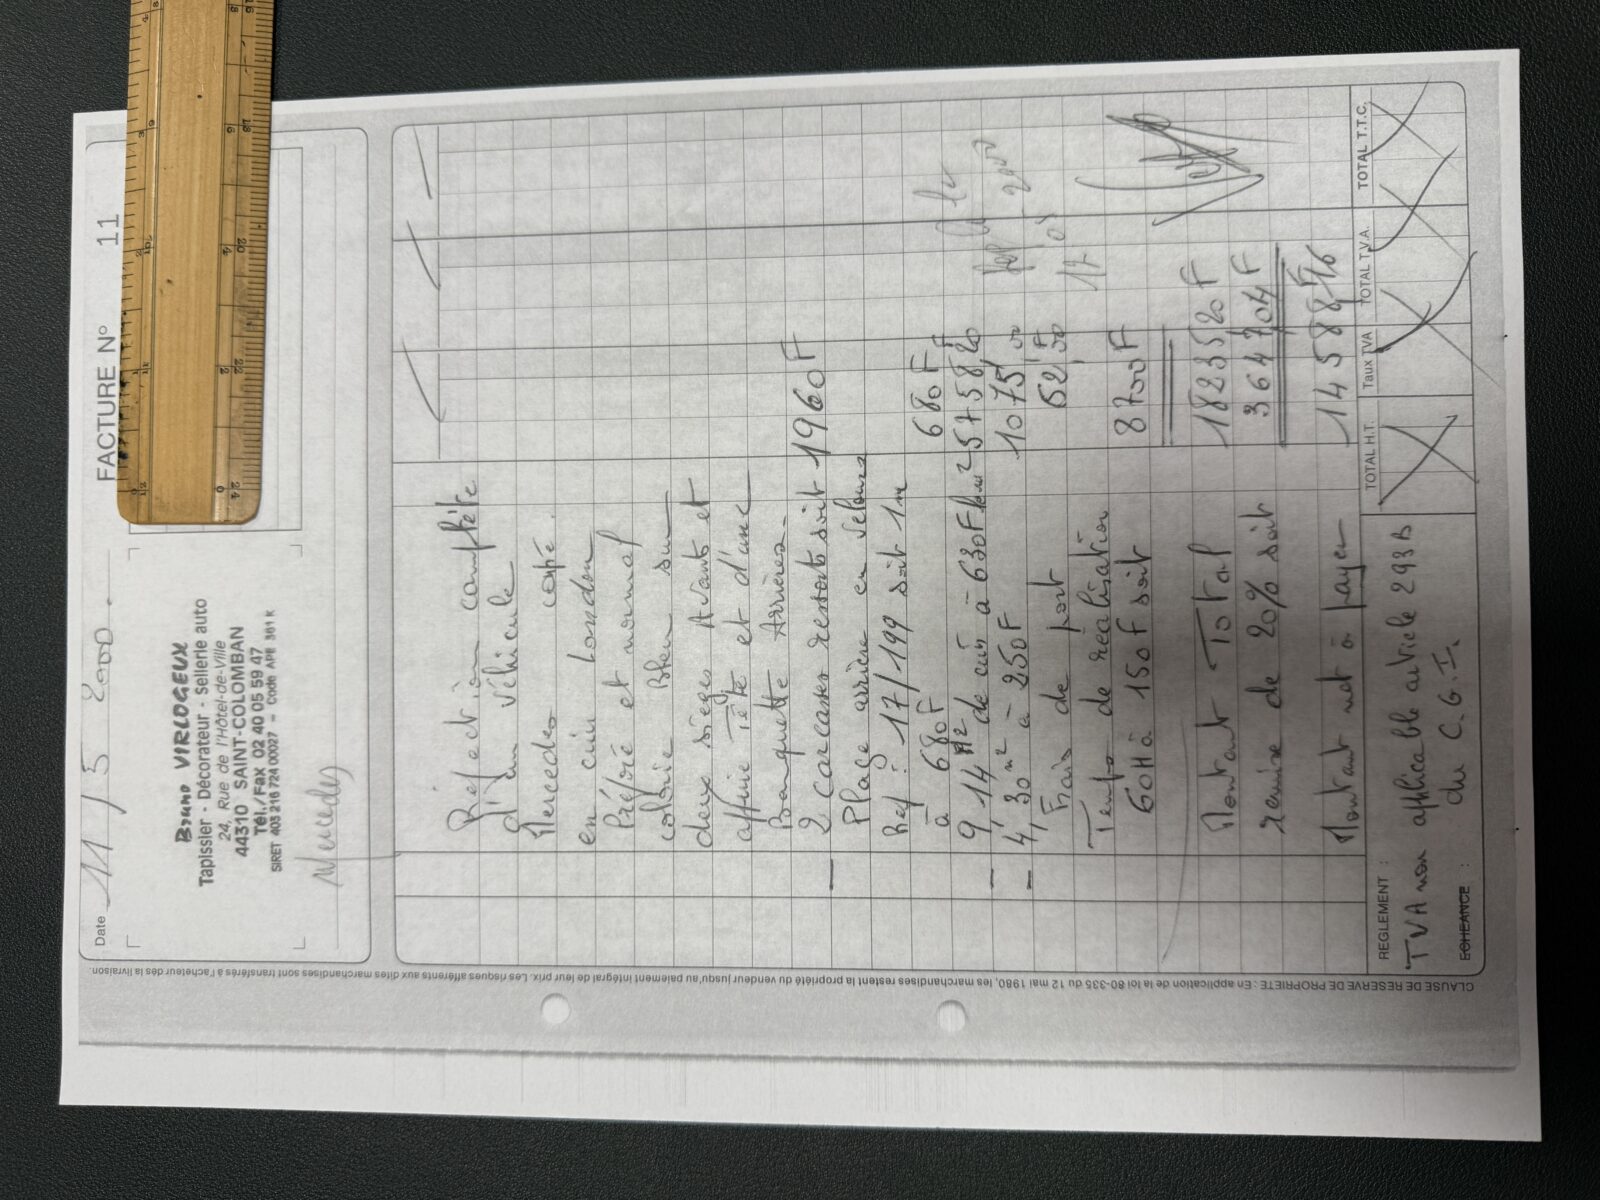 Date 11/5 2000.
FACTURE N° 11
Bruno VIRLOGEUX
Tapissier - Décorateur - Sellerie auto
24, Rue de l'Hôtel-de-Ville
44310 SAINT-COLOMBAN
Tél./Fax 02 40 05 59 47
SIRET 403 216 724 00027 - Code APE 361 K
Mercedes
Réfection complète
d'un véhicule
Mercedes copé.
en cuir London
Préféré et normal
colorie Bleu sur
deux sièges Avants et
appuie Tête et d'une
Banquette Arrières
- 2 carcasses ressorts soit 1960F
Plage arrière en velours
Ref : 17/199 soit 1m
à 680F 680F
- 9,14 M² de cuir à 630F le m² 5758,20
- 4,30 m² à 250F 1075,00
Frais de port 62,00
Temps de réalisation
60H à 150F soit 8700F
Montant Total 18235,20F
remise de 20% soit 3647,04F
Montant net à payer 14588F,16
le
17 05 2000
REGLEMENT :
TVA non applicable article 293B
du C.G.I.
ECHEANCE :
TOTAL H.T.
Taux TVA
TOTAL T.V.A.
TOTAL T.T.C.
CLAUSE DE RESERVE DE PROPRIETE : En application de la loi 80-335 du 12 mai 1980, les marchandises restent la propriété du vendeur jusqu'au paiement intégral de leur prix. Les risques afférents aux dites marchandises sont transférés à l'acheteur dès la livraison.